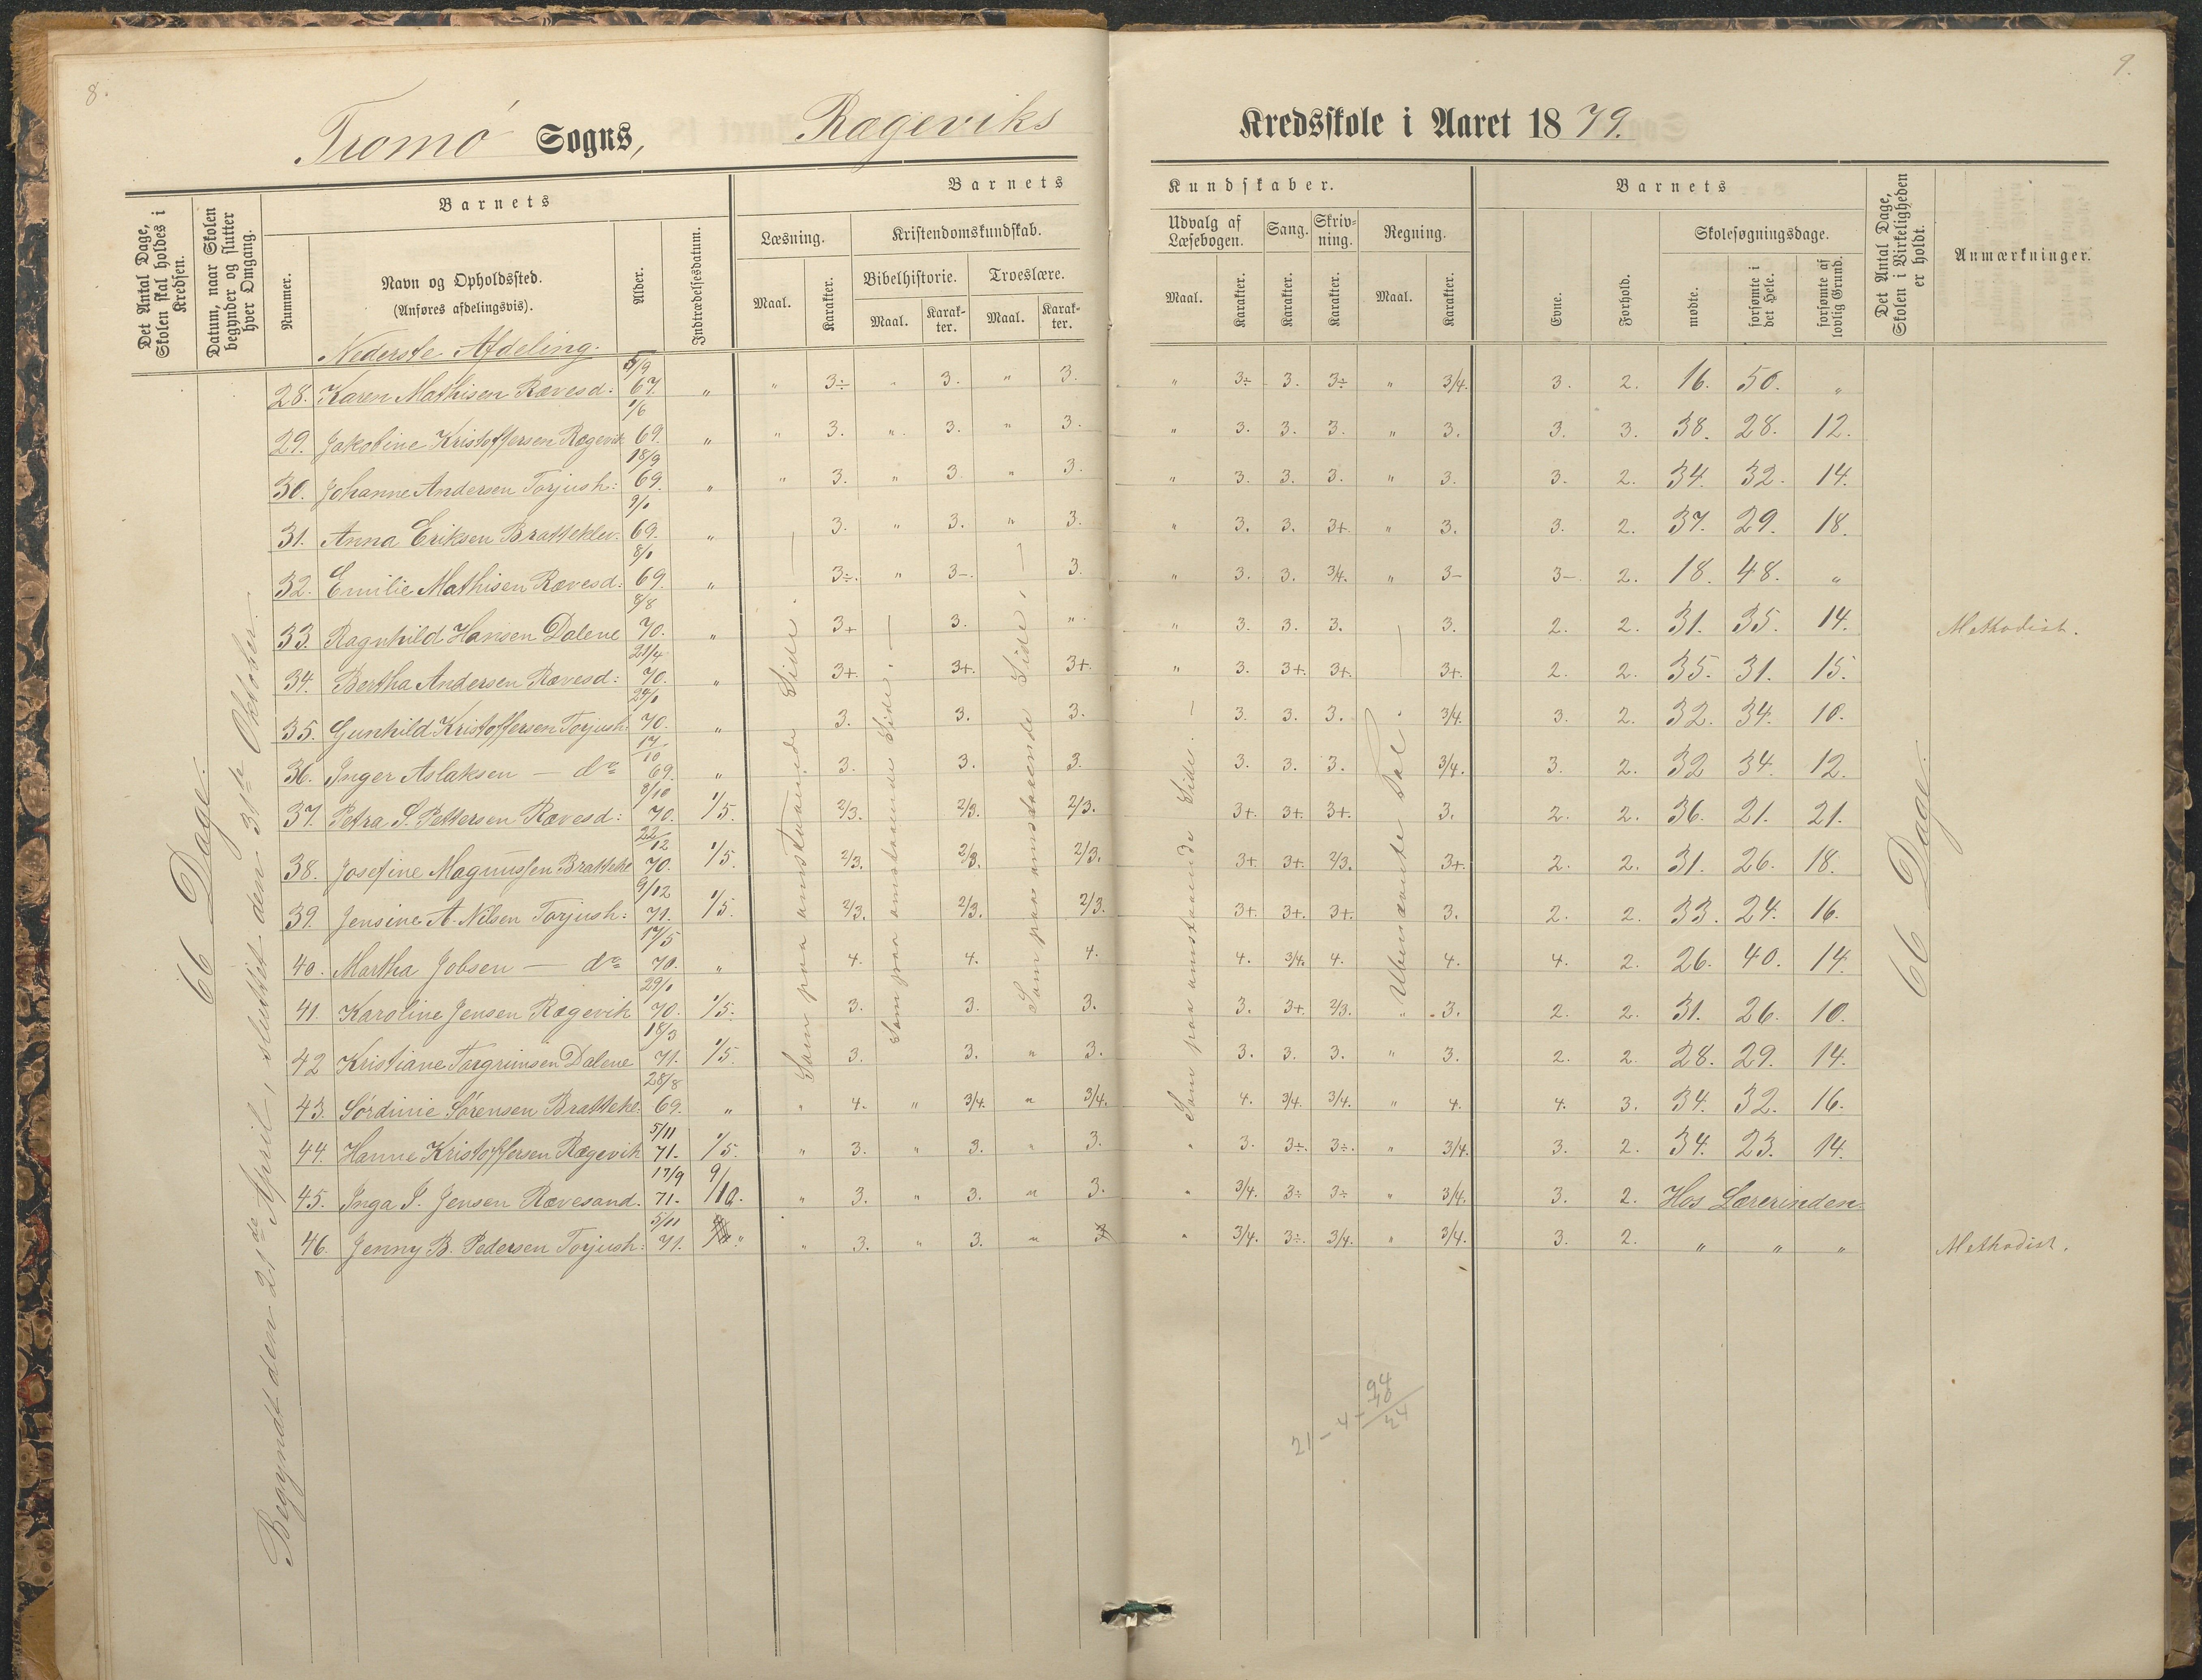 8.
9.
Tromø Sogns, Rægeviks Kredsskole i Aaret 1879.
Det Antal Dage, Skolen skal holdes i Kredsen.
Datum, naar Skolen begynder og slutter hver Omgang.
Barnets
Nummer.
Navn og Opholdssted.
(Anføres afdelingsvis).
Alder.
Indtrædelsesdatum.
Barnets Kundskaber.
Læsning.
Maal.
Karakter.
Kristendomskundskab.
Bibelhistorie.
Maal.
Karakter.
Troeslære.
Maal.
Karakter.
Udvalg af Læsebogen.
Maal.
Karakter.
Sang.
Karakter.
Skrivning.
Karakter.
Regning.
Maal.
Karakter.
Barnets
Evne.
Forhold.
Skolesøgningsdage.
mødte.
forsømte i det Hele.
forsømte af lovlig Grund.
Det Antal Dage, Skolen i Virkeligheden er holdt.
Anmærkninger.
66 Dage.
Begyndt den 21de April, sluttet den 31te Oktober.
Som paa omstaaende Side.
Som paa omstaaende Side.
Som paa omstaaende Side.
Som paa omstaaende Side.
Ubenævnte Tal.
66 Dage.
Nederste Afdeling.
28. Karen Mathisen Rævesd: 5/9 67. " " 3÷ " 3. " 3. " 3÷ 3. 3÷ " 3/4. 3. 2. 16. 50. "
29. Jakobine Kristoffersen Rægevik 1/6 69. " " 3. " 3. " 3. " 3. 3. 3. " 3. 3. 3. 38. 28. 12.
30. Johanne Andersen Torjush: 18/9 69. " " 3. " 3 " 3. " 3. 3. 3. " 3. 3. 2. 34. 32. 14.
31. Anna Eriksen Bratteklev. 9/1 69. " 3. " 3. " 3. " 3. 3. 3+ " 3. 3. 2. 37. 29. 18.
32. Emilie Mathisen Rævesd: 8/1 69. " 3÷. " 3-. 3. " 3. 3. 3/4. " 3- 3-. 2. 18. 48. "
33. Ragnhild Hansen Dalene 8/8 70. " 3+ 3. " " 3. 3. 3. 3. 2. 2. 31. 35. 14. Methodist.
34. Bertha Andersen Rævesd: 21/4 70. " 3+. 3+. 3+ " 3. 3+. 3+. 3+. 2. 2. 35. 31. 15.
35. Gunhild Kristoffersen Torjush. 24/1 70. " 3. 3. 3. 3. 3. 3. 3/4. 3. 2. 32. 34. 10.
36. Inger Aslaksen — do 17/10 69. " 3. 3. 3. 3. 3. 3. 3/4. 3. 2. 32 34. 12.
37. Petra S. Pettersen Rævesd: 8/10 70. 1/5. 2/3. 2/3. 2/3. 3+. 3+. 3+. 3. 2. 2. 36. 21. 21.
38. Josefine Magnussen Brattekl 22/12 70. 1/5. 2/3. 2/3. 2/3. 3+. 3+. 2/3. 3+. 2. 2. 31. 26. 18.
39. Jensine A. Nilsen Torjush: 9/12 71. 1/5. 2/3. 2/3. 2/3. 3+. 3+. 3+. 3. 2. 2. 33. 24. 16.
40. Martha Jobsen — do 17/5 70. " 4. 4. 4. 4. 3/4. 4. 4. 4. 2. 26. 40. 14.
41. Karoline Jensen Rægevik 29/1 70. 1/5. 3. 3. 3. 3. 3+. 2/3. " 3. 2. 2. 31. 26. 10.
42 Kristiane Torgrimsen Dalene 18/3 71. 1/5. 3. 3. " 3. 3. 3. 3. " 3. 2. 2. 28. 29. 14.
43. Sørdinie Sørensen Brattekl. 28/8 69. " " 4. " 3/4. " 3/4. 4. 3/4. 3/4. " 4. 4. 3. 34. 32. 16.
44. Hanne Kristoffersen Rægevik 5/11 71. 1/5. " 3. " 3. " 3. " 3. 3÷. 3÷. " 3/4. 3. 2. 34. 23. 14.
45. Inga J. Jensen Rævesand. 17/9 71. 9/10. " 3. " 3. " 3. " 3/4. 3÷ 3÷ " 3/4. 3. 2. Hos Lærerinden.
46. Jenny B. Pedersen Torjush: 5/11 71. " " 3. " 3. " 3 " 3/4. 3÷. 3/4. " 3/4. 3. 2. " " " Methodist.
94
21-4- 70
24